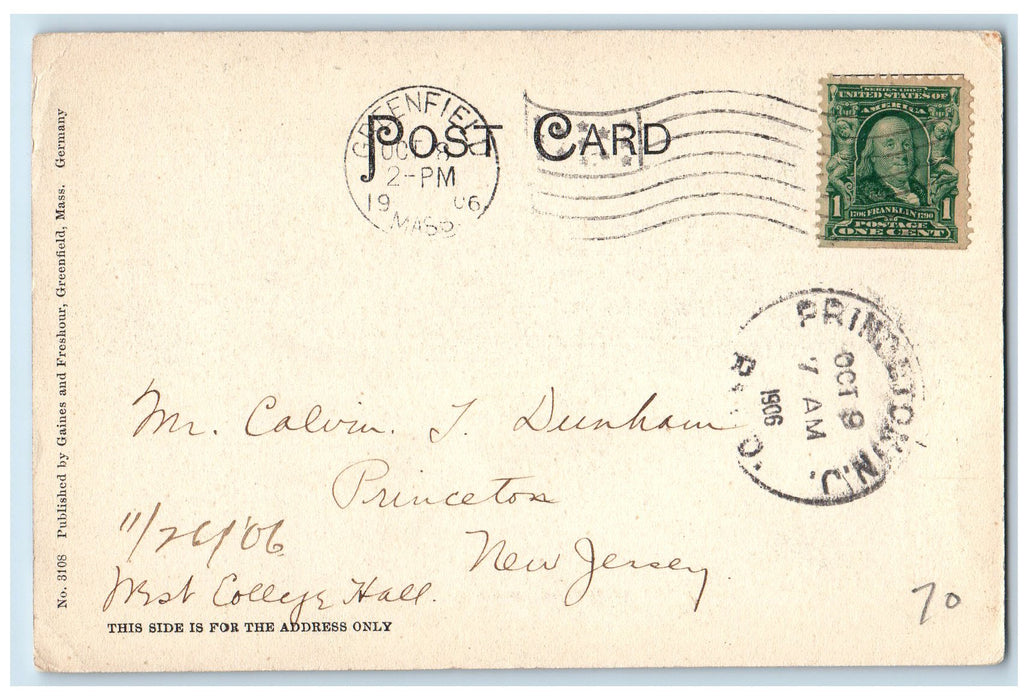 POST CARD
GREENFIELD
OCT 8
2-PM
19 06
MASS.
SERIES 1902
UNITED STATES OF
AMERICA
1 1
1706 FRANKLIN 1790
POSTAGE
ONE CENT
PRINCETON, N.J.
OCT 9
7 AM
1906
REC'D.
Mr. Calvin T. Dunham
Princeton
New Jersey.
11/26/06
West College Hall.
THIS SIDE IS FOR THE ADDRESS ONLY
70
No. 3108 Published by Gaines and Freshour, Greenfield, Mass. Germany